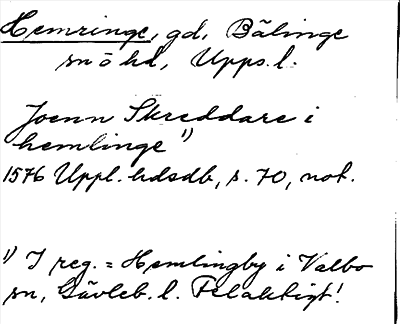 Hemringe, gd, Bälinge
sn o hd, Upps. l.
Joenn Skreddare i
hemlinge 1)
1576 Uppl. hdsdb, s. 70, not.
1) I reg. = Hemlingby i Valbo
sn, Gävleb. l. Felaktigt!